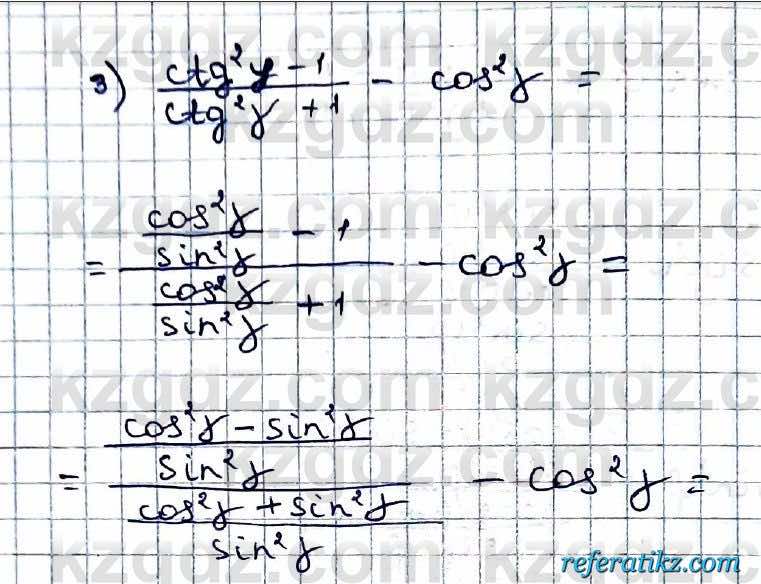 3) (ctg²γ - 1)/(ctg²γ + 1) - cos²γ =
= (cos²γ/sin²γ - 1)/(cos²γ/sin²γ + 1) - cos²γ =
= ((cos²γ - sin²γ)/sin²γ)/((cos²γ + sin²γ)/sin²γ) - cos²γ =
kzgdz.com
referatikz.com